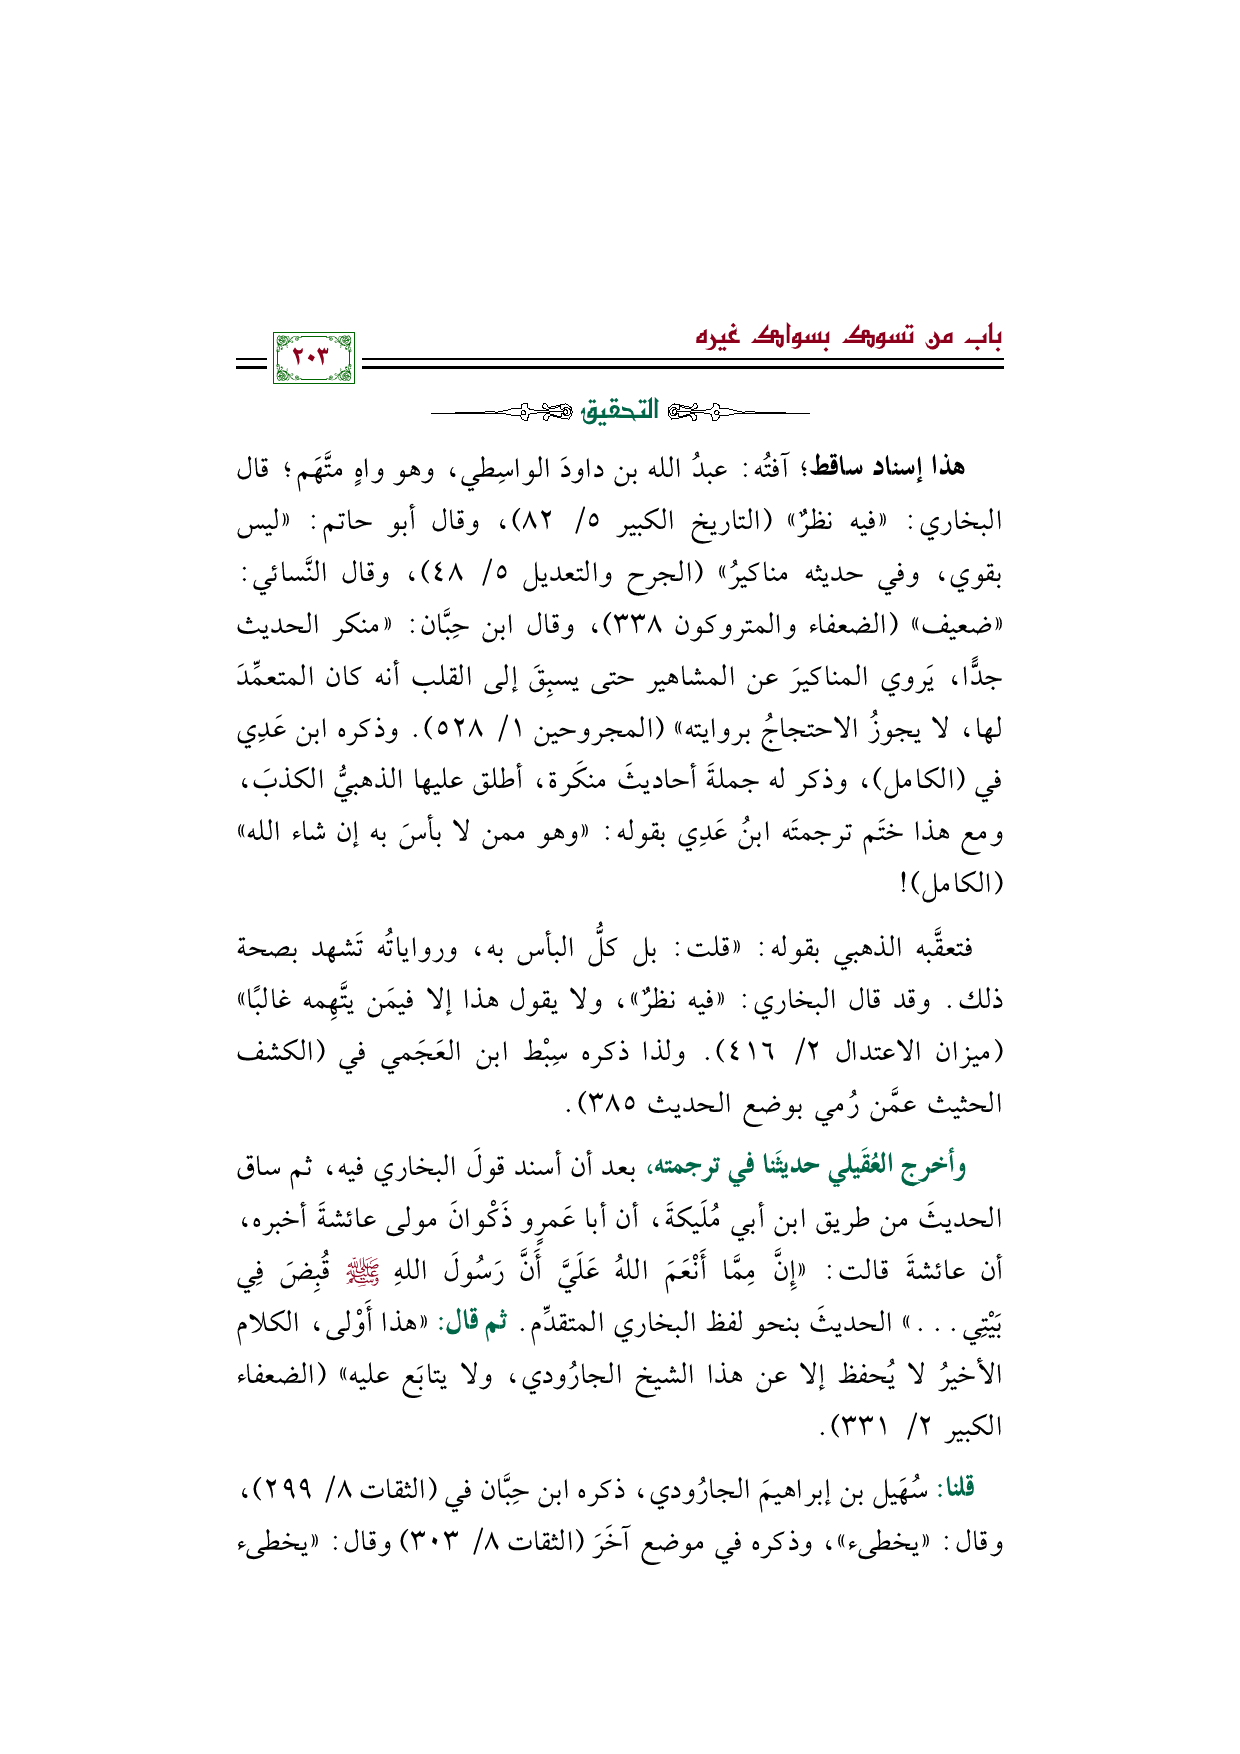 باب من تسوك بسواك غيره
٢٠٣
التحقيق
هذا إسناد ساقط؛ آفتُه: عبدُ الله بن داودَ الواسِطي، وهو واهٍ متَّهَم؛ قال
البخاري: «فيه نظرٌ» (التاريخ الكبير ٥/ ٨٢)، وقال أبو حاتم: «ليس
بقوي، وفي حديثه مناكيرُ» (الجرح والتعديل ٥/ ٤٨)، وقال النَّسائي:
«ضعيف» (الضعفاء والمتروكون ٣٣٨)، وقال ابن حِبَّان: «منكر الحديث
جدًّا، يَروي المناكيرَ عن المشاهير حتى يسبِقَ إلى القلب أنه كان المتعمِّدَ
لها، لا يجوزُ الاحتجاجُ بروايته» (المجروحين ١/ ٥٢٨). وذكره ابن عَدِي
في (الكامل)، وذكر له جملةَ أحاديثَ منكَرة، أطلق عليها الذهبيُّ الكذبَ،
ومع هذا ختَم ترجمتَه ابنُ عَدِي بقوله: «وهو ممن لا بأسَ به إن شاء الله»
(الكامل)!
فتعقَّبه الذهبي بقوله: «قلت: بل كلُّ البأس به، ورواياتُه تَشهد بصحة
ذلك. وقد قال البخاري: «فيه نظرٌ»، ولا يقول هذا إلا فيمَن يتَّهِمه غالبًا»
(ميزان الاعتدال ٢/ ٤١٦). ولذا ذكره سِبْط ابن العَجَمي في (الكشف
الحثيث عمَّن رُمي بوضع الحديث ٣٨٥).
وأخرج العُقَيلي حديثَنا في ترجمته، بعد أن أسند قولَ البخاري فيه، ثم ساق
الحديثَ من طريق ابن أبي مُلَيكةَ، أن أبا عَمرٍو ذَكْوانَ مولى عائشةَ أخبره،
أن عائشةَ قالت: «إِنَّ مِمَّا أَنْعَمَ اللهُ عَلَيَّ أَنَّ رَسُولَ اللهِ ﷺ قُبِضَ فِي
بَيْتِي...» الحديثَ بنحو لفظ البخاري المتقدِّم. ثم قال: «هذا أَوْلى، الكلام
الأخيرُ لا يُحفظ إلا عن هذا الشيخ الجارُودي، ولا يتابَع عليه» (الضعفاء
الكبير ٢/ ٣٣١).
قلنا: سُهَيل بن إبراهيمَ الجارُودي، ذكره ابن حِبَّان في (الثقات ٨/ ٢٩٩)،
وقال: «يخطىء»، وذكره في موضع آخَرَ (الثقات ٨/ ٣٠٣) وقال: «يخطىء